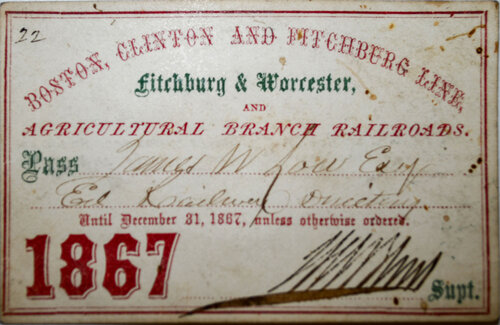 22
BOSTON, CLINTON AND FITCHBURG LINE,
Fitchburg & Worcester,
AND
AGRICULTURAL BRANCH RAILROADS.
Pass James W Low Esq
Ed Railway Directory
Until December 31, 1867, unless otherwise ordered.
1867
Supt.